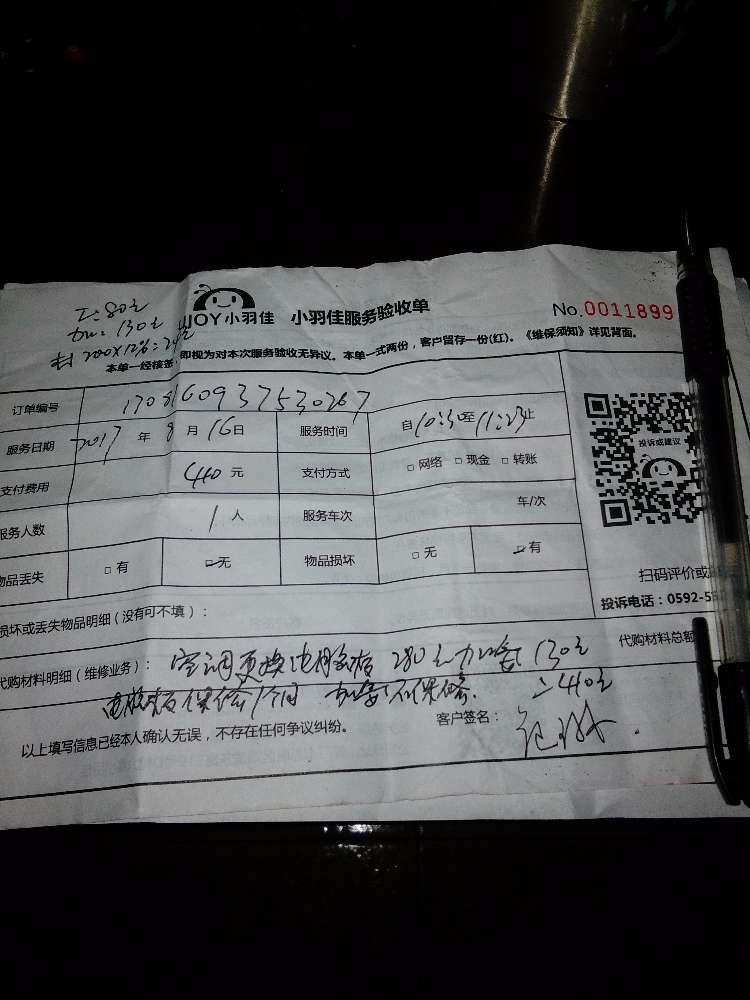 工:80元
加:130元
200X12%=24元
JOY小羽佳 小羽佳服务验收单
No.0011899
本单一经核签,即视为对本次服务验收无异议。本单一式两份,客户留存一份(红)。《维保须知》详见背面。
订单编号 1708160937530267
服务日期 2017 年 8 月 16 日 服务时间 自10:30至11:23止
支付费用 440 元 支付方式 □网络 □现金 □转账
服务人数 1 人 服务车次 车/次
物品丢失 □有 □无 物品损坏 □无 □有
投诉或建议
扫码评价或
投诉电话:0592-5
损坏或丢失物品明细(没有可不填):
代购材料总额
代购材料明细(维修业务): 空调更换电脑板 280元 加氟 130元
电脑板保修1个月 加氟不保修. 二40元
以上填写信息已经本人确认无误,不存在任何争议纠纷。 客户签名: